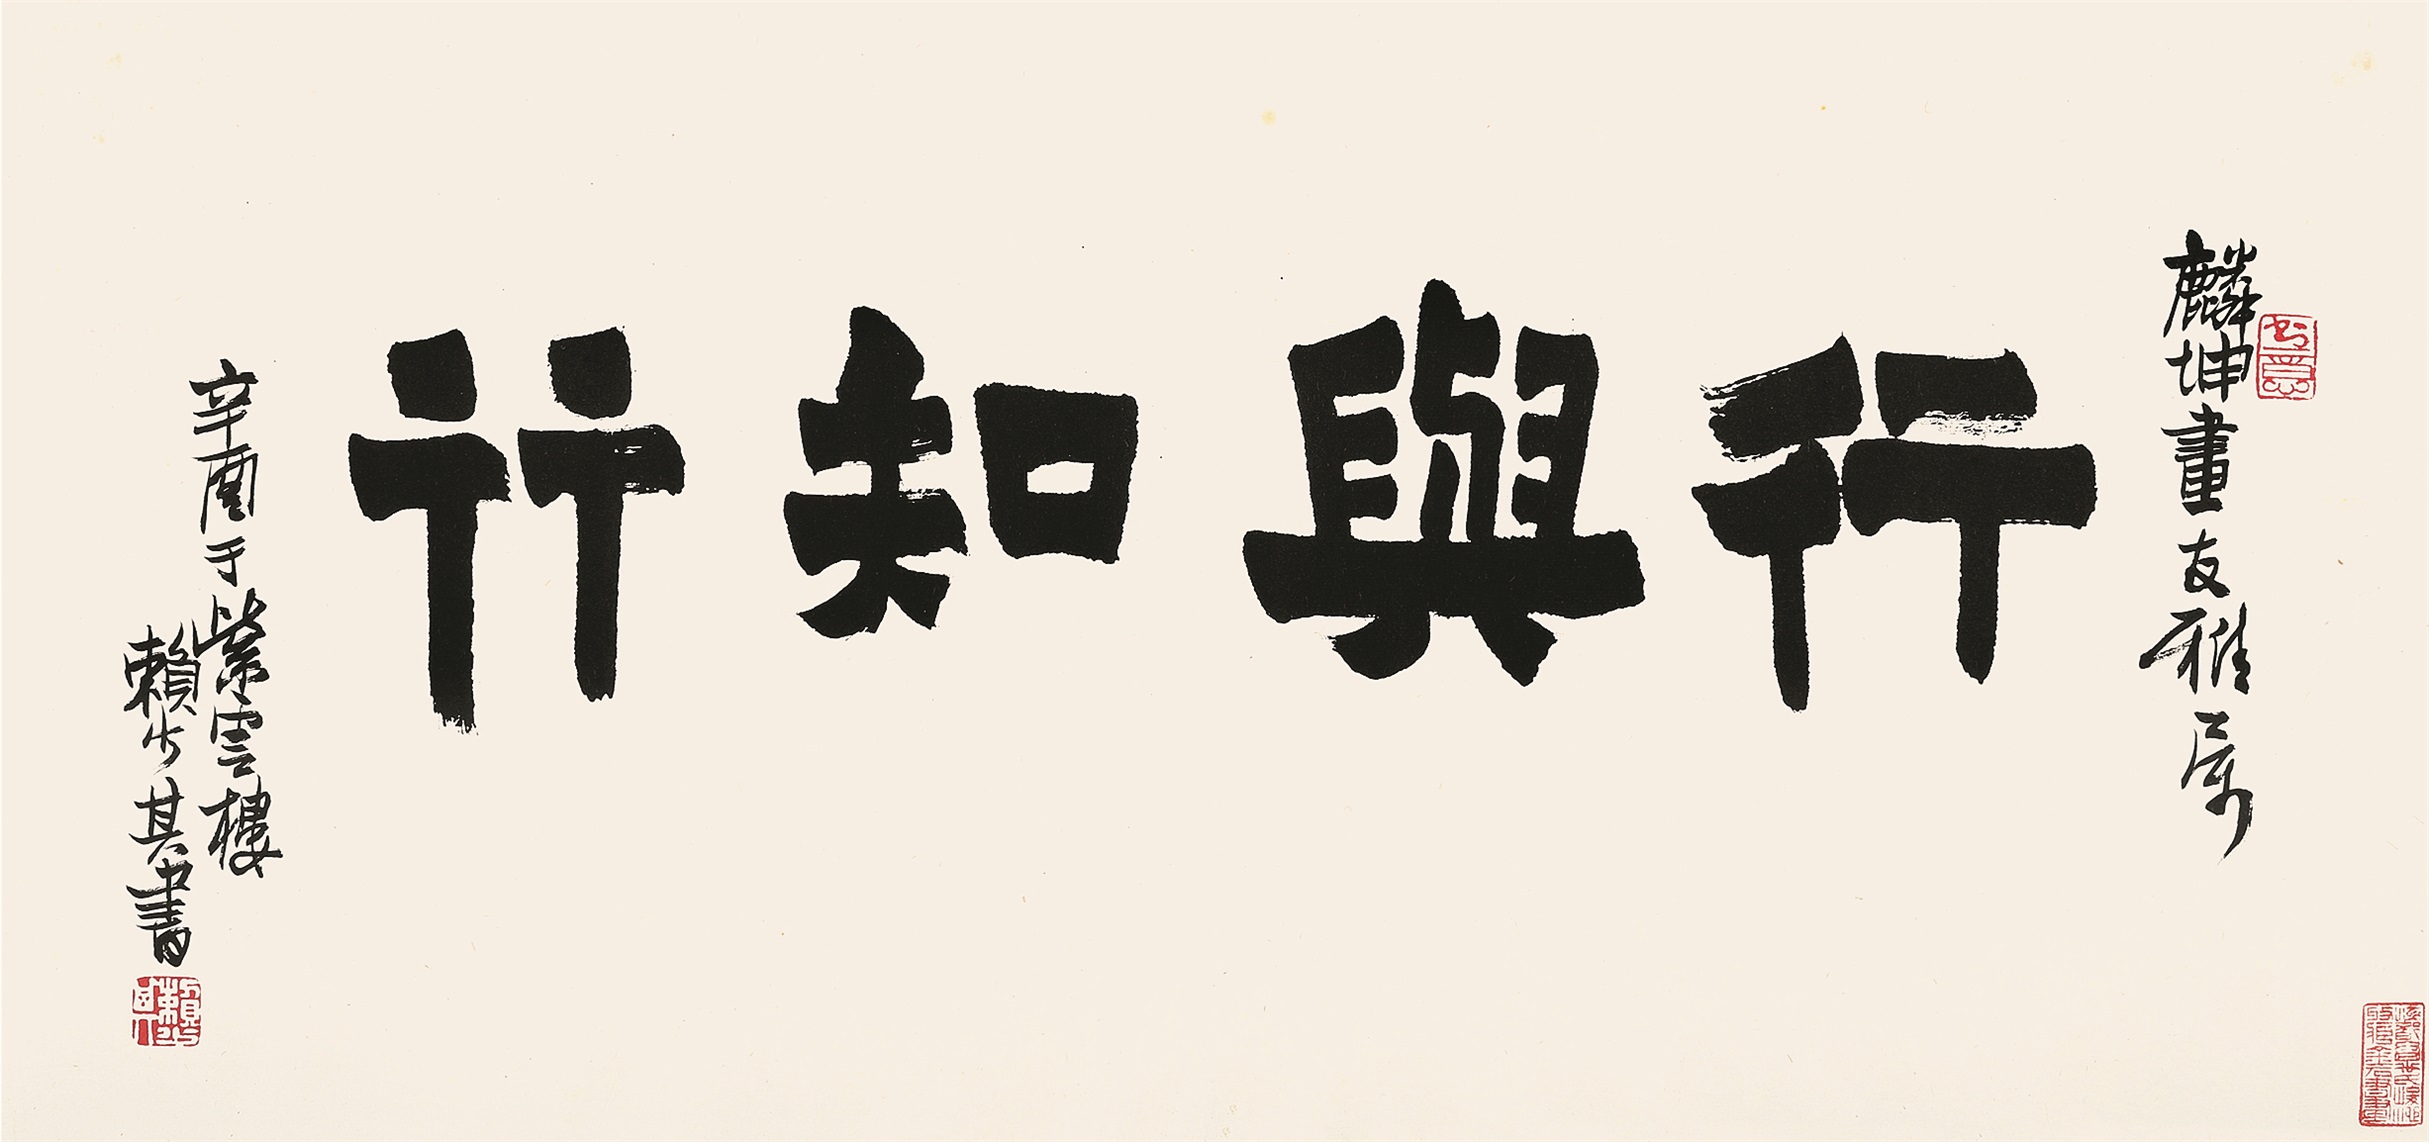 麟坤畫友雅屬
行與知行
辛酉于紫雲樓
賴少其書